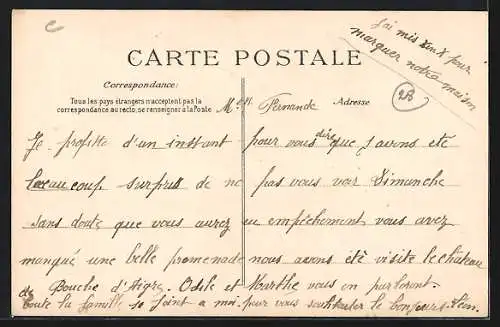 c
J'ai mis deux X pour
marquer notre maison
CARTE POSTALE
Correspondance:
Tous les pays étrangers n'acceptent pas la
correspondance au recto, se renseigner à la Poste
Adresse
28
Melle Fernande
Je profitte d'un instant pour vous dire que j'avons été
beaucoup surpris de ne pas vous voir Dimanche
sans doute que vous aurez eu empéchement vous avez
manqué une belle promenade nous avons été visité le château
de Bouche d'Aigre. Odile et Marthe vous en parleront.
toute la famille se joint a moi pour vous souhaiter le bonjour